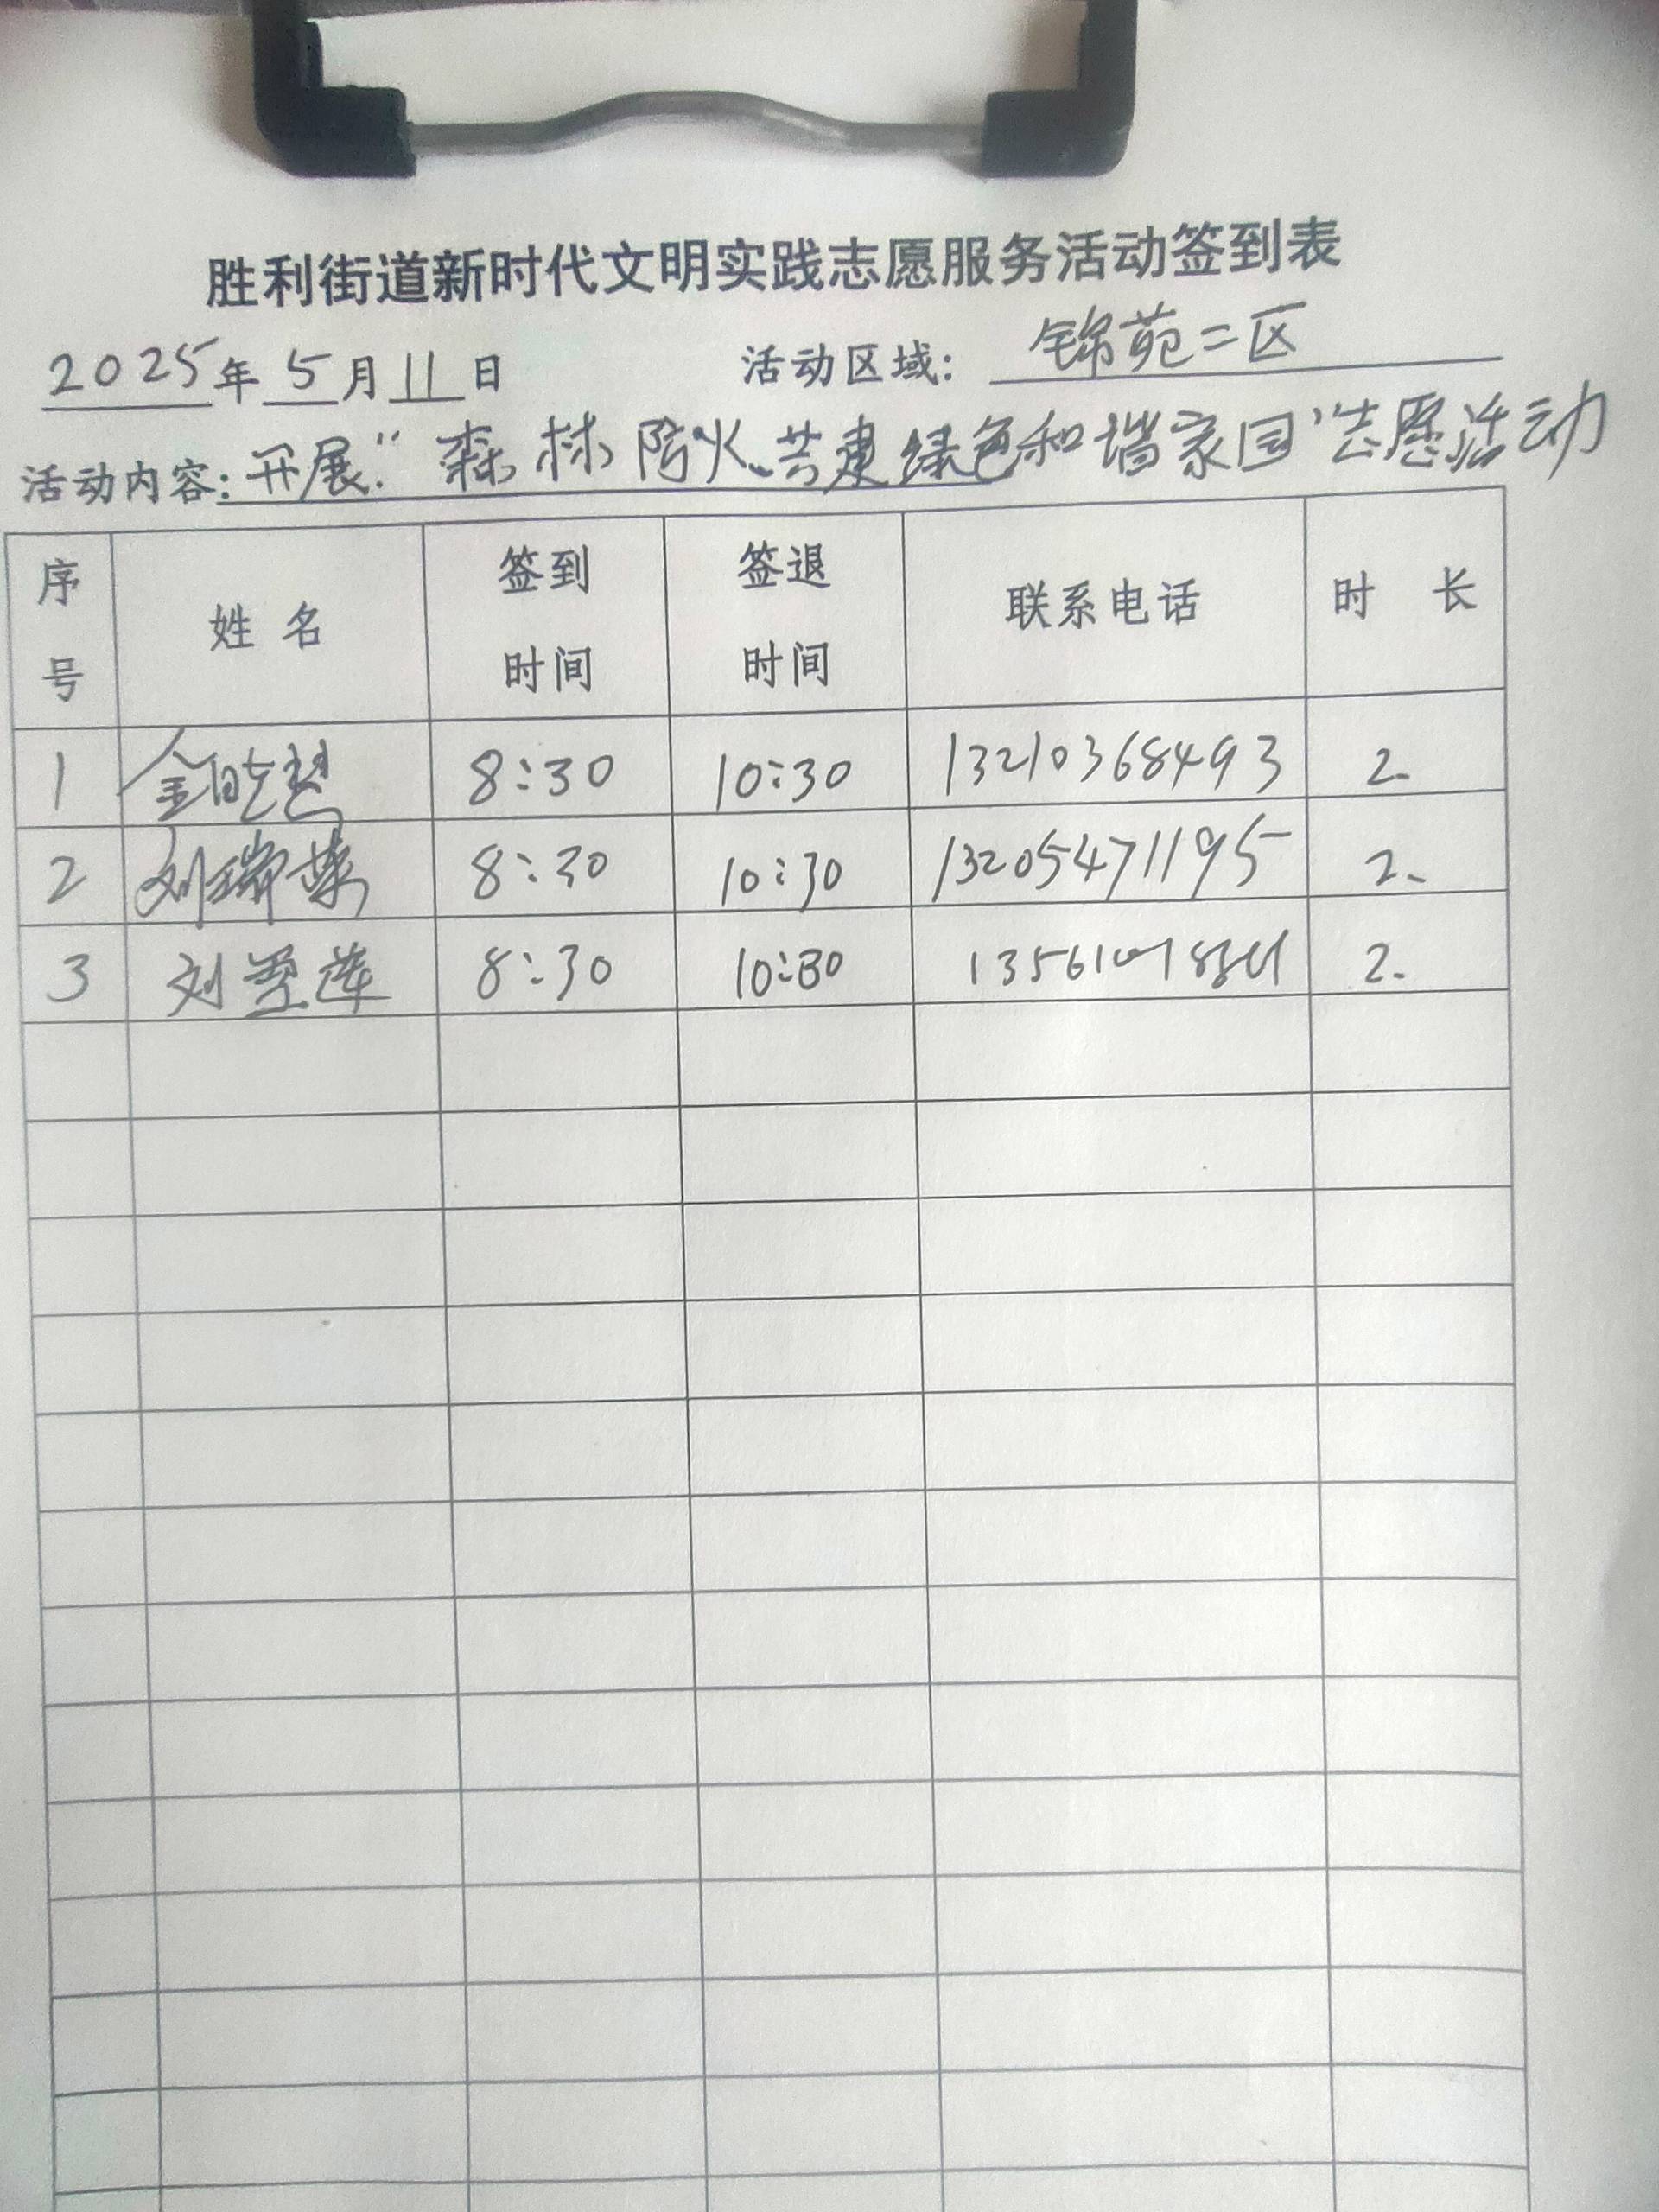 胜利街道新时代文明实践志愿服务活动签到表
2025年5月11日 活动区域：锦苑二区
活动内容：开展“森林防火、共建绿色和谐家园”志愿活动
序号 姓名 签到时间 签退时间 联系电话 时长
1 金晓慧 8:30 10:30 13210368493 2.
2 刘瑞荣 8:30 10:30 13205471195 2.
3 刘 莲 8:30 10:30 2.